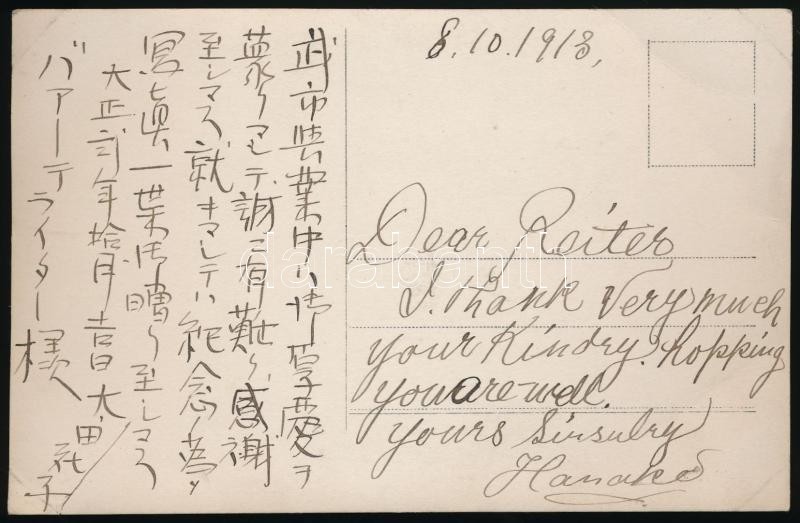 武市興業中ハ御享慶ヲ
蒙リマシテ誠ニ有難ク感謝
至シマス就キマシテハ紀念ノ為メ
冩真一葉御贈リ至シマス
大正弐年拾月吉日 太田花子
バァーテライター様
8.10.1913,
Dear Reiter
I. Thank Very much
your Kindry. hopping
you are well.
yours Sinsulry
Hanako
darabanth